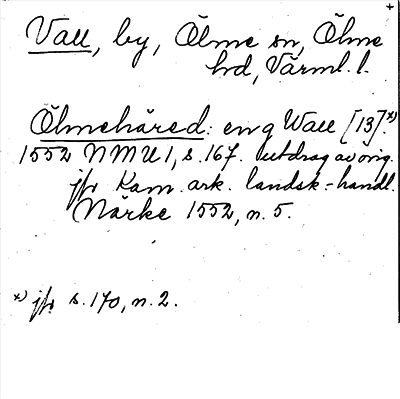 Vall, by, Ölme sn, Ölme
hd, Värml. l.
Ölmehäred: eng Wall [13].x)
1552 NMU 1, s. 167. utdrag av orig.
jfr Kam. ark. landsk.-handl.
Närke 1552, n. 5.
x) jfr s. 170, n. 2.